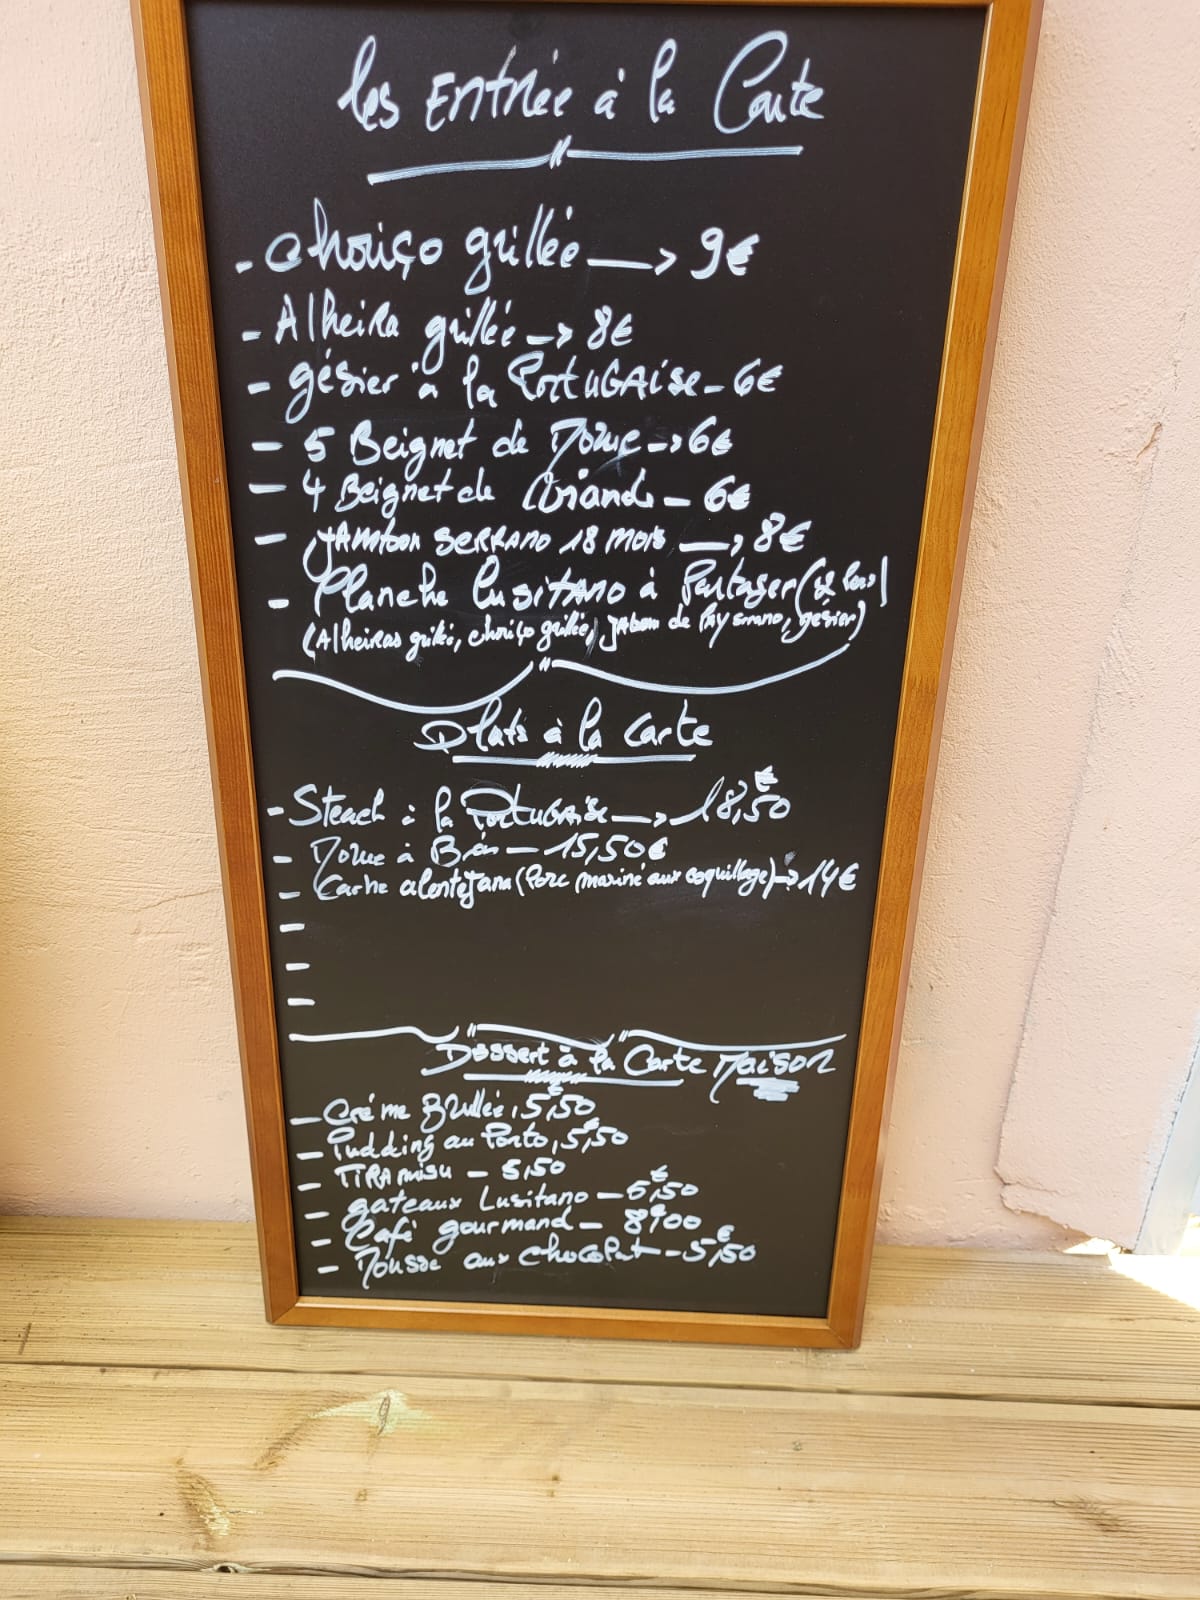 les Entrée à la Carte
- Choriço grillée —> 9€
- Alheira grillée -> 8€
- gésier à la PortuGAise - 6€
- 5 Beignet de Morue -> 6€
- 4 Beignet de Viande - 6€
- JAmbon SERRANO 18 mois —> 8€
- Planche LusitANO à Partager
(Alheiras grillé, choriço grillée, JAbon de Pay serrano, gésier)
Plats à la Carte
- Steack à la PortuGAise —> 18,50€
- Morue à Brás - 15,50€
- Carne alentejana (Porc mariné aux coquillage) -> 14€
-
-
-
Dessert à la Carte MAison
- Créme Brullée, 5,50€
- Pudding au Porto, 5,50€
- TIRAmisu - 5,50
- gateaux Lusitano - 5,50€
- Café gourmand - 8€00
- Mousse aux Chocolat - 5,50€